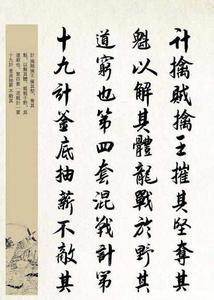 計擒賊擒王摧其堅奪其
魁以解其體龍戰於野其
道窮也第四套混戰計第
十九計釜底抽薪不敵其
計 擒賊擒王 摧其堅，奪其
魁，以解其體。龍戰于野，其
道窮也。第四套 混戰計 第
十九計 釜底抽薪 不敵其